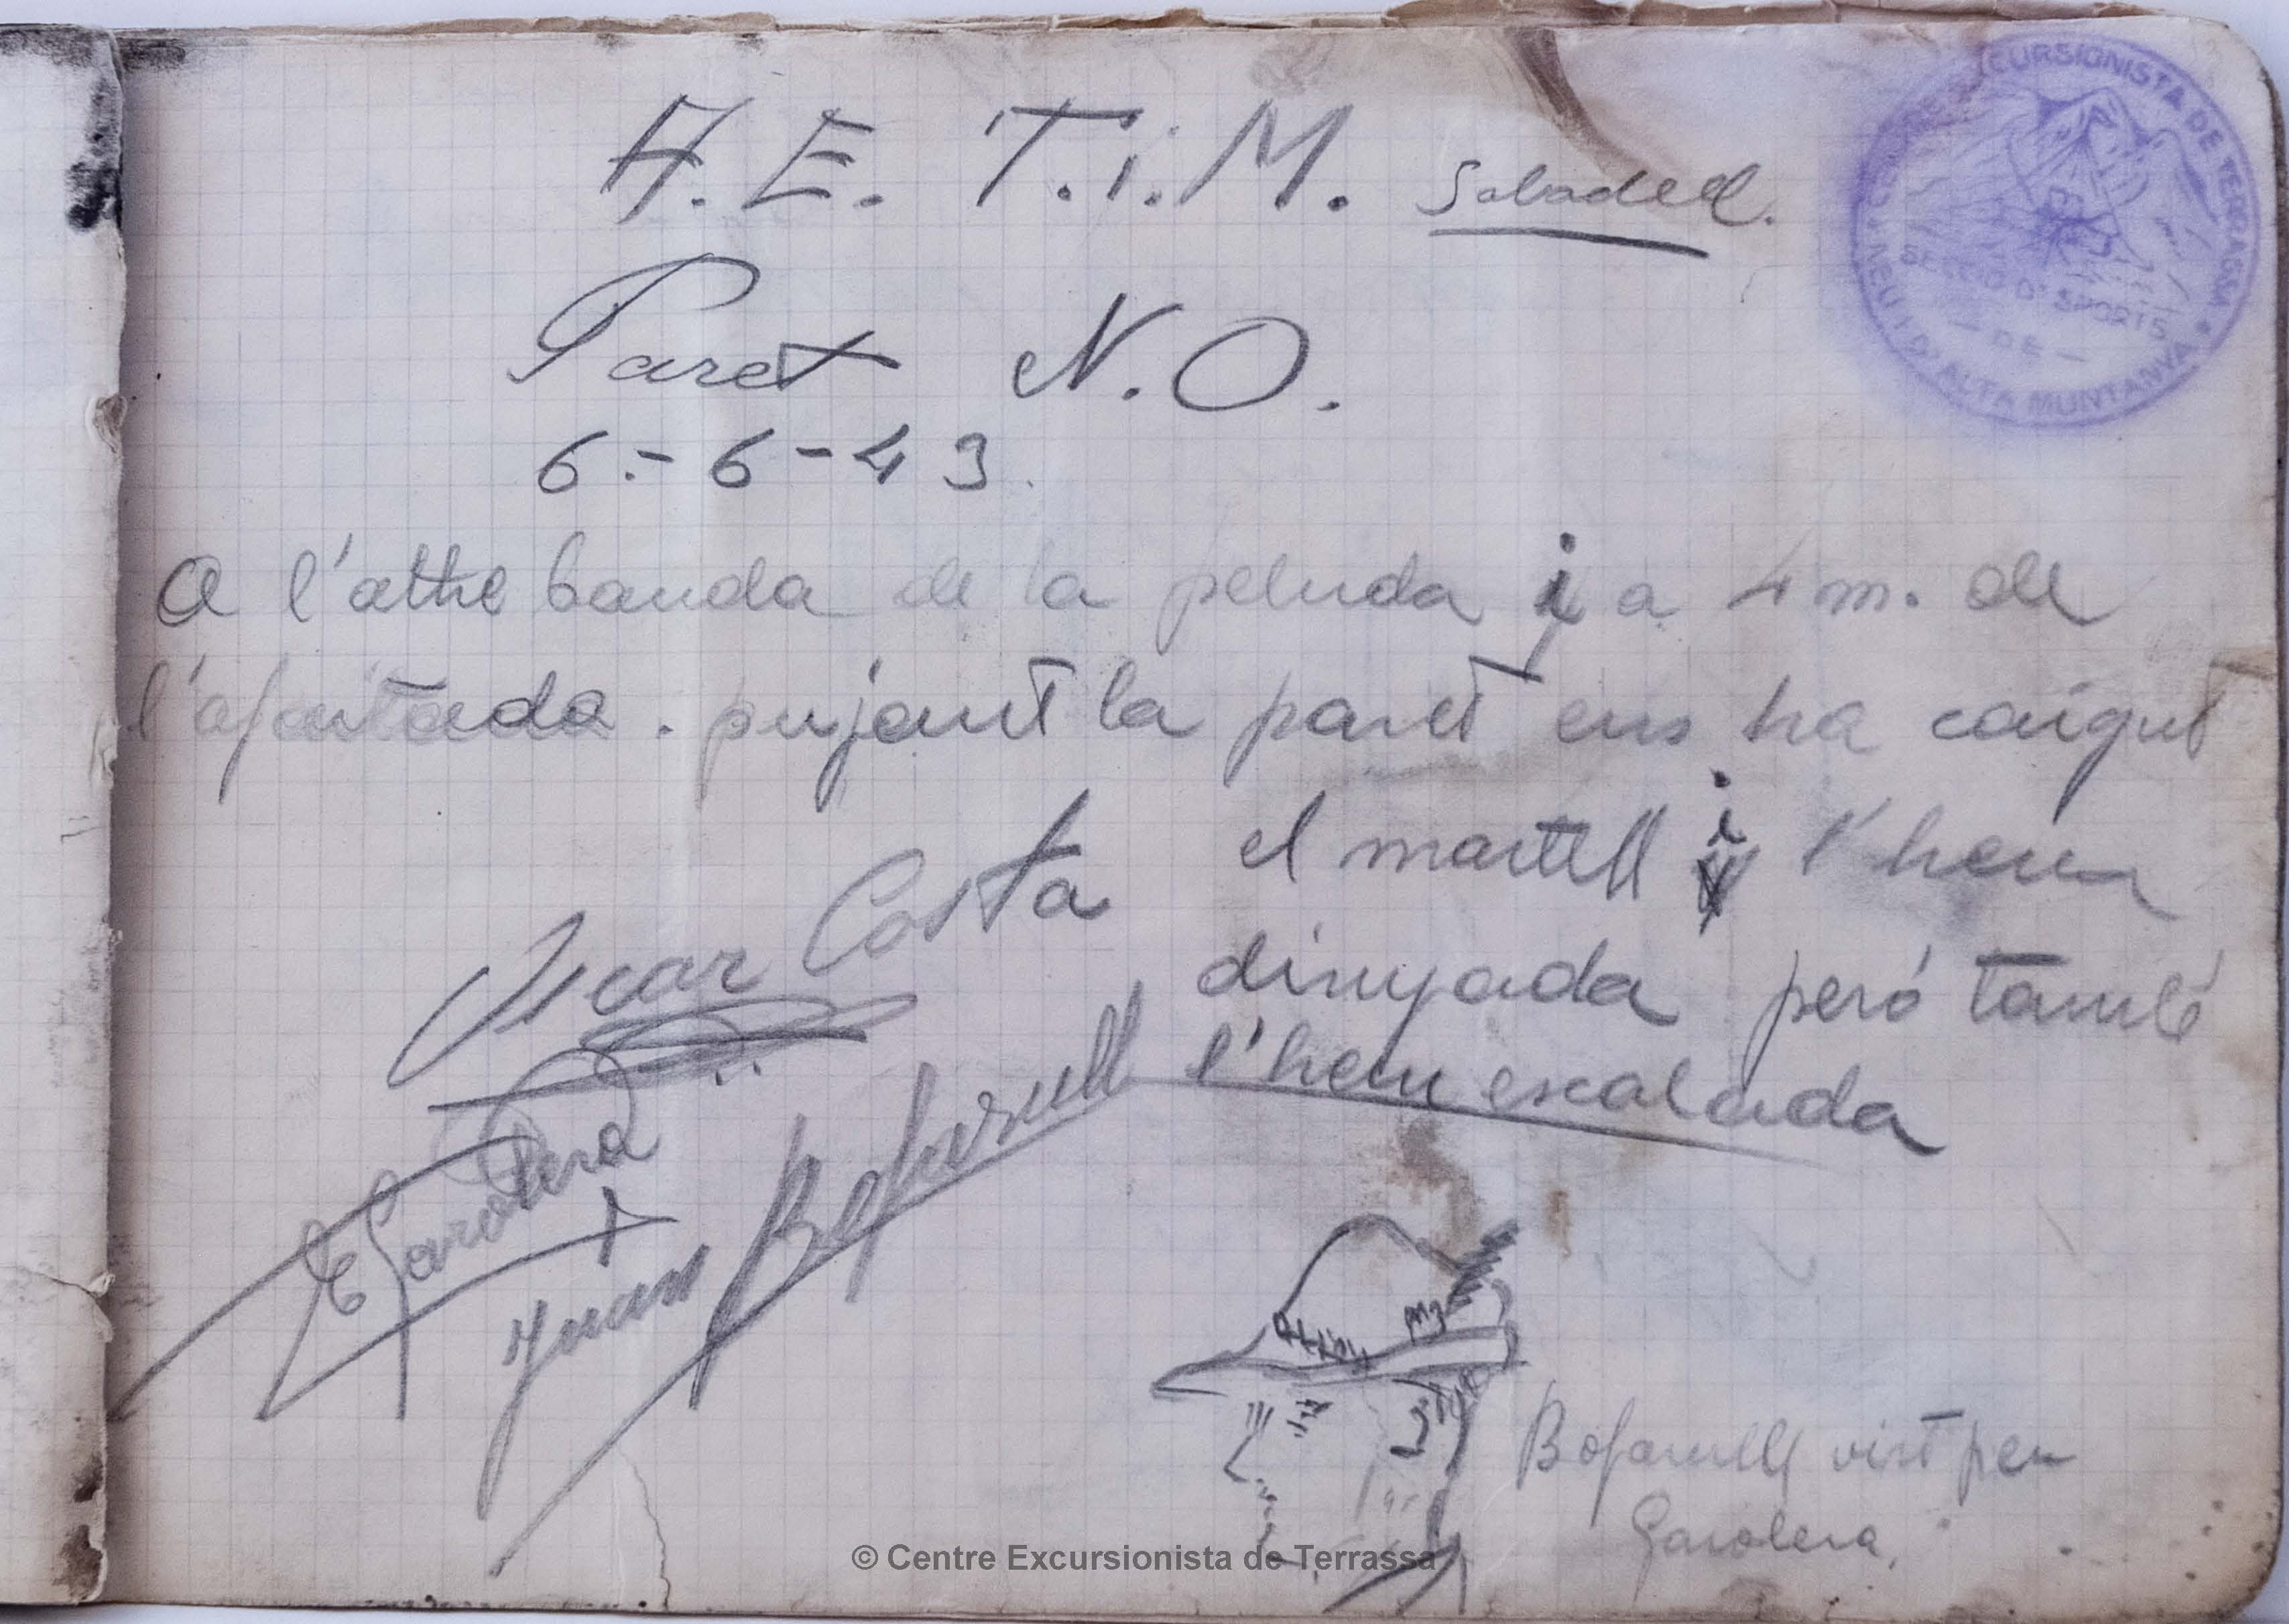 A. E. T. i. M. Sabadell.
CENTRE EXCURSIONISTA DE TERRASSA
SECCIÓ D'ESPORTS
— DE —
NEU I D'ALTA MUNTANYA
Paret N. O.
6.-6-43.
A l'altre banda de la peluda i a 4 m. de
l'afaitada. pujant la paret ens ha caigut
el martell i l'hem
dinyada peró també
l'hem escalada
Oscar Costa
E Garolera
Juan Bofarull
Bofarull vist per
Garolera.
© Centre Excursionista de Terrassa